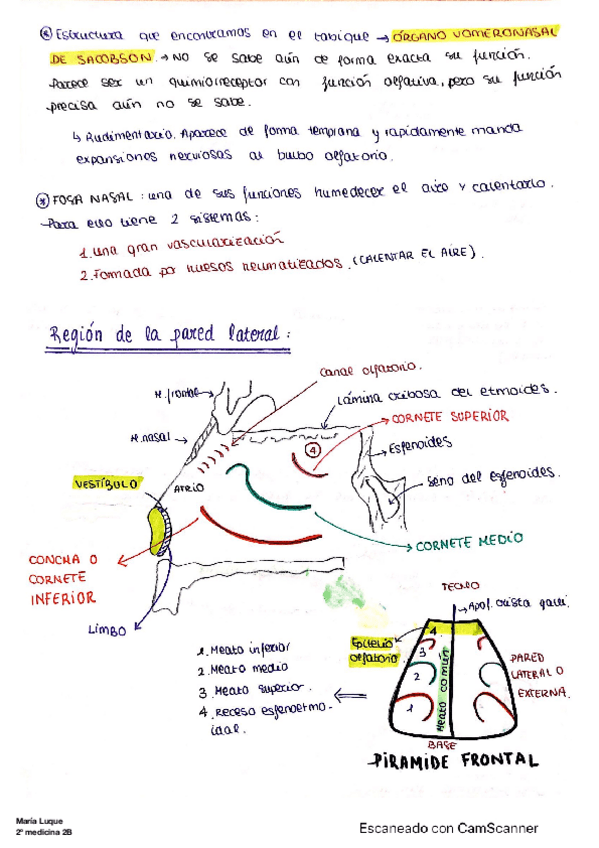 * Estructura que encontramos en el tabique → ÓRGANO VOMERONASAL
DE JACOBSON. → NO se sabe aún de forma exacta su función.
Parece ser un quimiorreceptor con función olfativa, pero su función
precisa aún no se sabe.
↳ Rudimentario. Aparece de forma temprana y rapidamente manda
expansiones nerviosas al bulbo olfatorio.
* FOSA NASAL : una de sus funciones humedecer el aire y calentarlo.
Para ello tiene 2 sistemas :
1. Una gran vascularización
2. Formada por huesos neumatizados. (CALENTAR EL AIRE).
Región de la pared lateral :
Canal olfatorio.
H. frontal
Lámina cribosa del etmoides.
CORNETE SUPERIOR
H. nasal
4
Esfenoides
VESTÍBULO
ATRIO
Seno del esfenoides.
CORNETE MEDIO
CONCHA O
CORNETE
INFERIOR
LIMBO
TECHO
Apof. crista galli.
1. Meato inferior
2. Meato medio
3. Meato superior.
4. Receso esfenoetmo-
idal.
Epitelio
olfatorio
4
3
2
1
Meato común
PARED
LATERAL O
EXTERNA.
BASE
PIRAMIDE FRONTAL
María Luque
2º medicina 2B
Escaneado con CamScanner